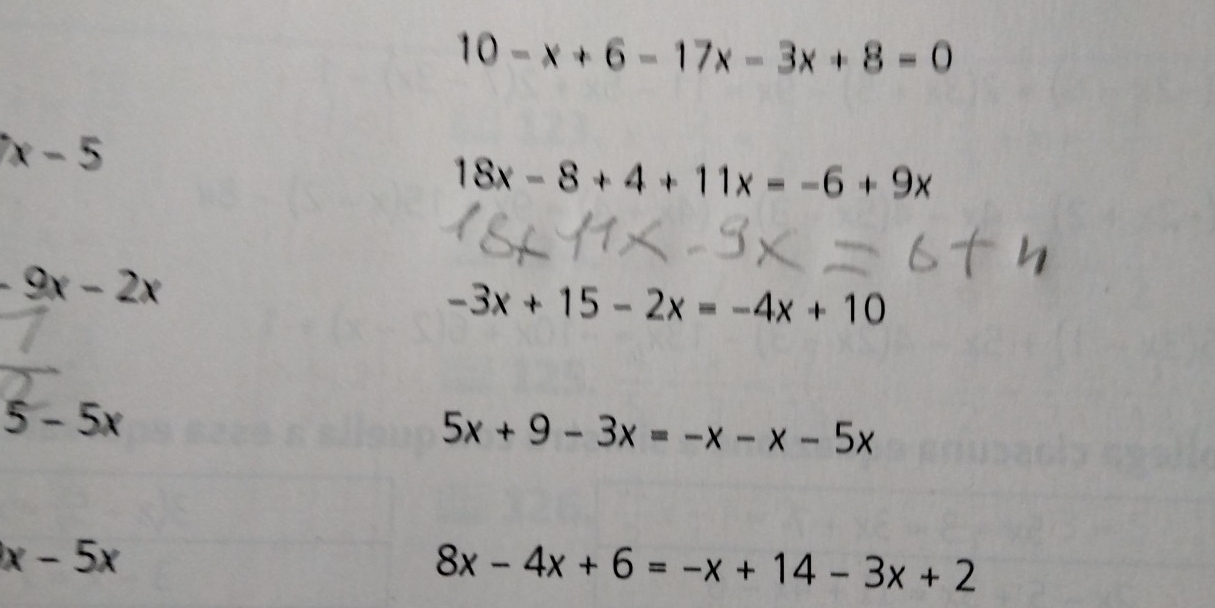 10 - x + 6 - 17x - 3x + 8 = 0
x - 5
18x - 8 + 4 + 11x = -6 + 9x
18x 11x - 9x = 6 + 4
- 9x - 2x
-3x + 15 - 2x = -4x + 10
5 - 5x
5x + 9 - 3x = -x - x - 5x
x - 5x
8x - 4x + 6 = -x + 14 - 3x + 2